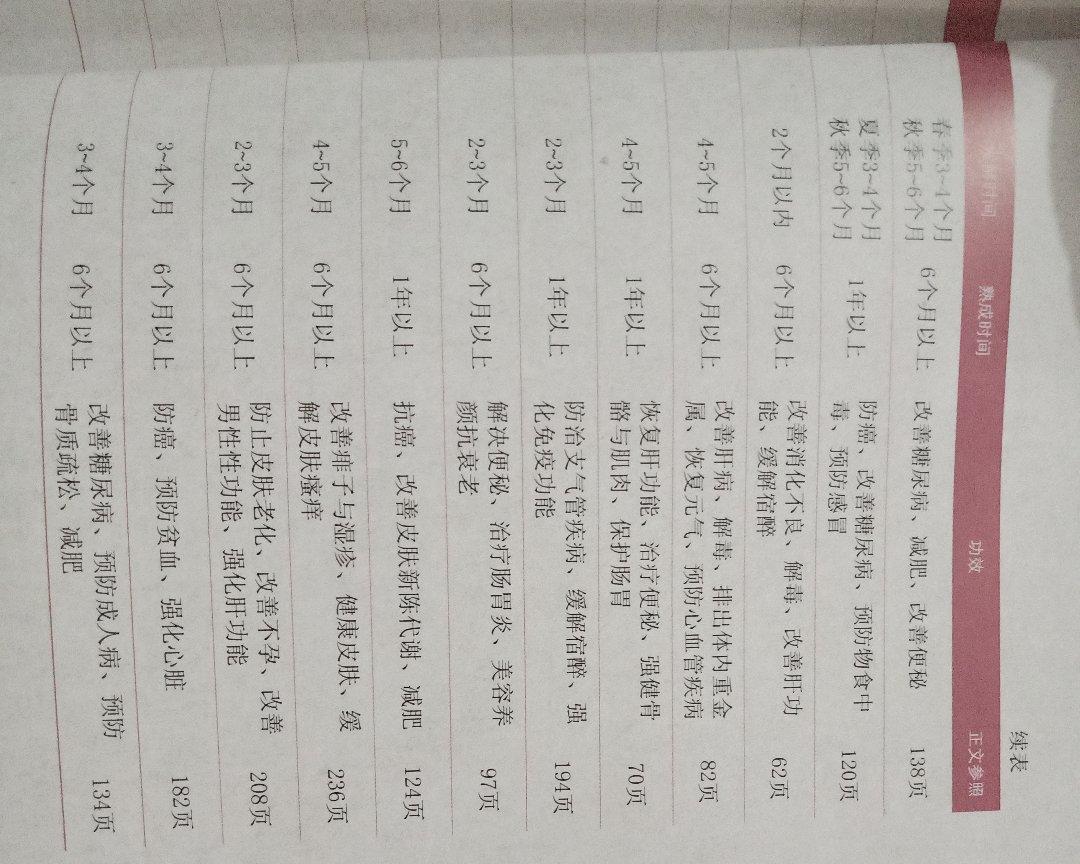 续表
时间 熟成时间 功效 正文参照
春季3~4个月
秋季5~6个月 6个月以上 改善糖尿病、减肥、改善便秘 138页
夏季3~4个月
秋季5~6个月 1年以上 防癌、改善糖尿病、预防物食中
毒、预防感冒 120页
2个月以内 6个月以上 改善消化不良、解毒、改善肝功
能、缓解宿醉 62页
4~5个月 6个月以上 改善肝病、解毒、排出体内重金
属、恢复元气、预防心血管疾病 82页
4~5个月 1年以上 恢复肝功能、治疗便秘、强健骨
骼与肌肉、保护肠胃 70页
2~3个月 1年以上 防治支气管疾病、缓解宿醉、强
化免疫功能 194页
2~3个月 6个月以上 解决便秘、治疗肠胃炎、美容养
颜抗衰老 97页
5~6个月 1年以上 抗癌、改善皮肤新陈代谢、减肥 124页
4~5个月 6个月以上 改善痱子与湿疹、健康皮肤、缓
解皮肤瘙痒 236页
2~3个月 6个月以上 防止皮肤老化、改善不孕、改善
男性性功能、强化肝功能 208页
3~4个月 6个月以上 防癌、预防贫血、强化心脏 182页
3~4个月 6个月以上 改善糖尿病、预防成人病、预防
骨质疏松、减肥 134页